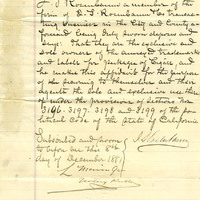 J. S. Rosenbaum a member of the
firm of D. & J. Rosenbaum Co transac
ting business in the City and County a
foresaid being duly sworn deposes and
says. That they are the exclusive and
sole owners of the annexed Trademarks
and labels for package of Cigars, and
he makes this affidavit for the purpose
of securing to themselves and their
agents the sole and exclusive use there
of under the provisions of Sections Nos
3196. 3197. 3198 and 3199 of the po
litical Code of the State of California
Subscribed and sworn
to before me this 8th
day of December 18